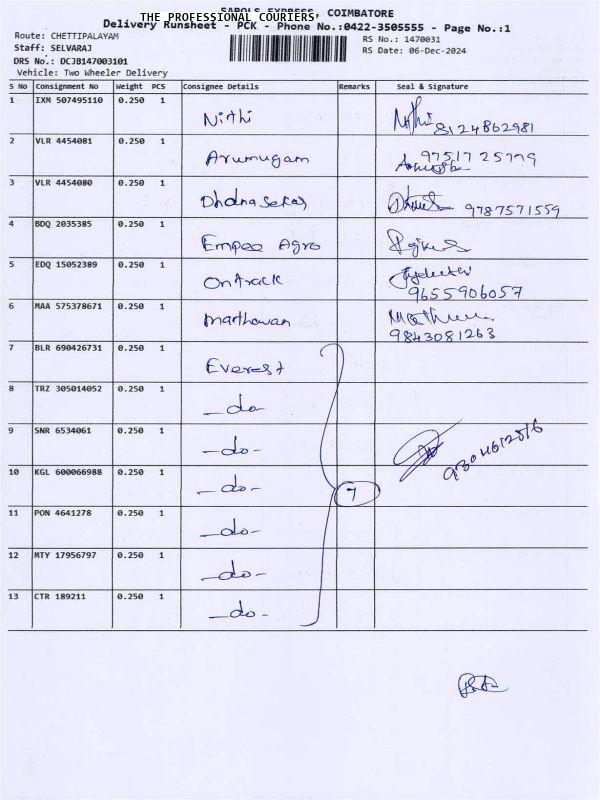 THE PROFESSIONAL COURIERS, COIMBATORE
Delivery Runsheet - PCK - Phone No.:0422-3505555 - Page No.:1
Route: CHETTIPALAYAM
RS No.: 1470031
Staff: SELVARAJ
RS Date: 06-Dec-2024
DRS No.: DCJB147003101
Vehicle: Two Wheeler Delivery
S No Consignment No Weight PCS Consignee Details Remarks Seal & Signature
1 IXM 507495110 0.250 1 Nithi Nithi 8124862981
2 VLR 4454081 0.250 1 Arumugam 97517 25779
3 VLR 4454080 0.250 1 Dhanasekar 9787571559
4 BDQ 2035385 0.250 1 Empee Agro
5 EDQ 15052389 0.250 1 Ontrack 9655906057
6 MAA 575378671 0.250 1 9843081263
7 BLR 690426731 0.250 1 Everest
8 TRZ 305014052 0.250 1 - do -
9 SNR 6534061 0.250 1 - do -
10 KGL 600066988 0.250 1 - do - 7
11 PON 4641278 0.250 1 - do -
12 MTY 17956797 0.250 1 - do -
13 CTR 189211 0.250 1 - do -